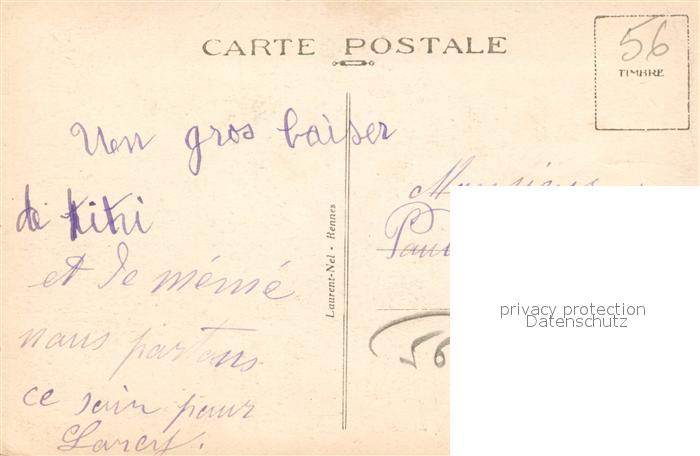 CARTE POSTALE
56
TIMBRE
Un gros baiser
de Kiki
et de mémé
nous partons
ce soir pour
Laurent-Nel • Rennes
Monsieur
Paul
56
privacy protection
Datenschutz